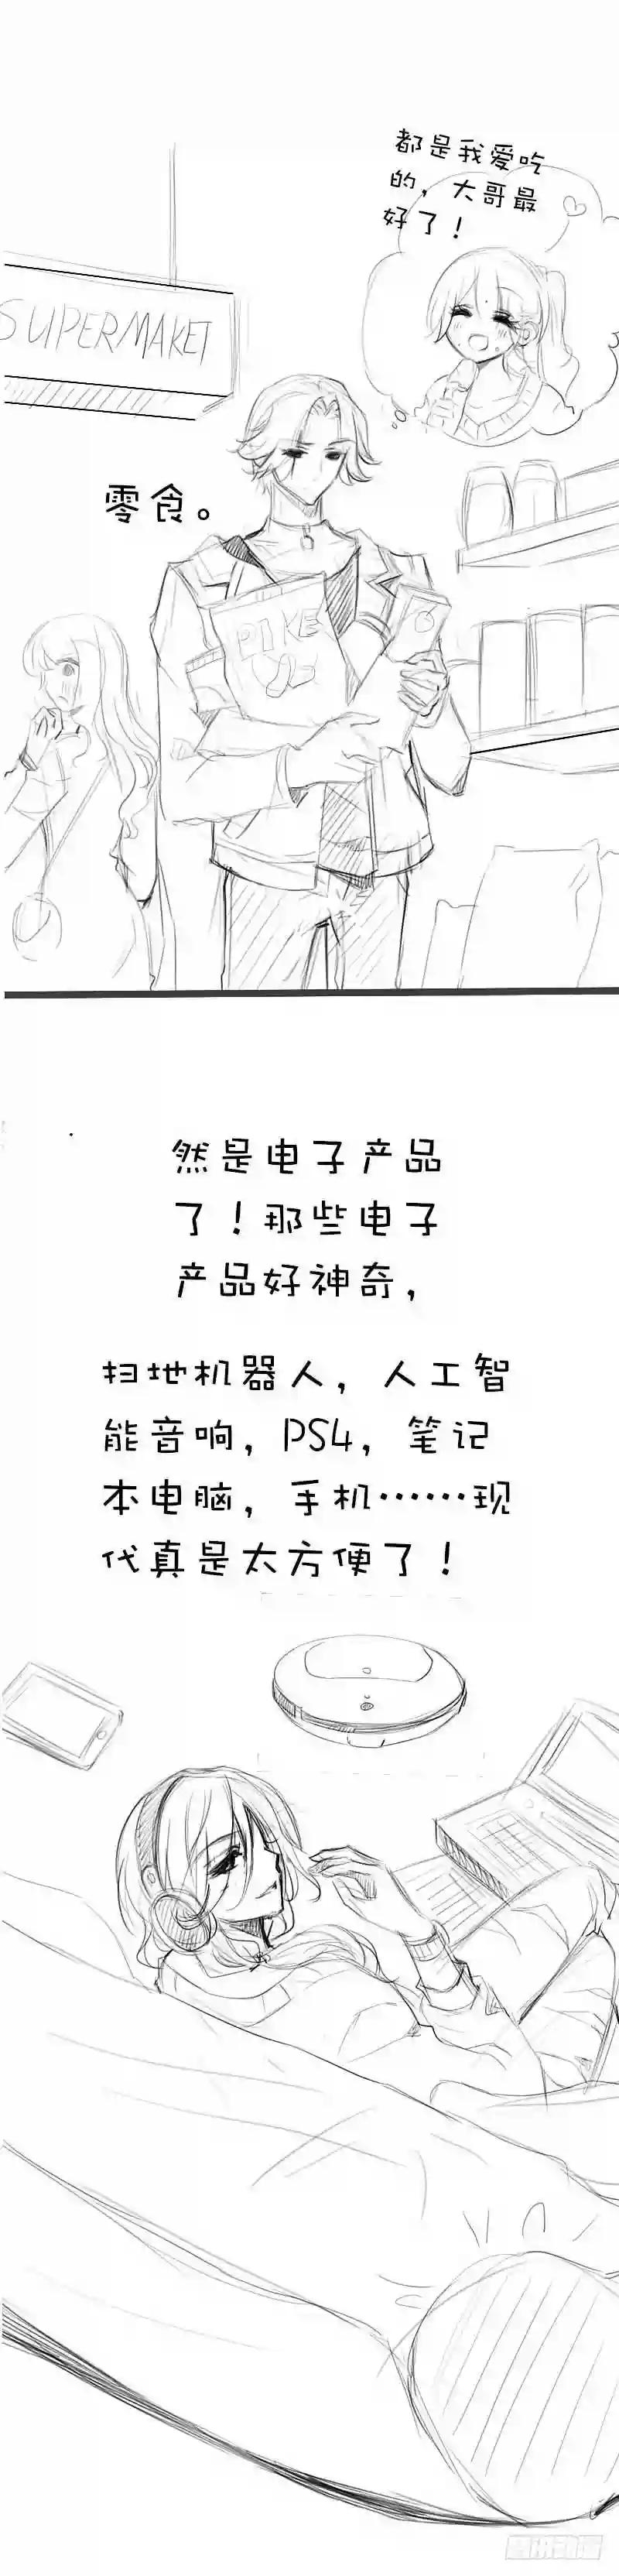 都是我爱吃
的，大哥最
好了！
SUPERMAKET
零食。
然是电子产品
了！那些电子
产品好神奇，
扫地机器人，人工智
能音响，PS4，笔记
本电脑，手机……现
代真是太方便了！